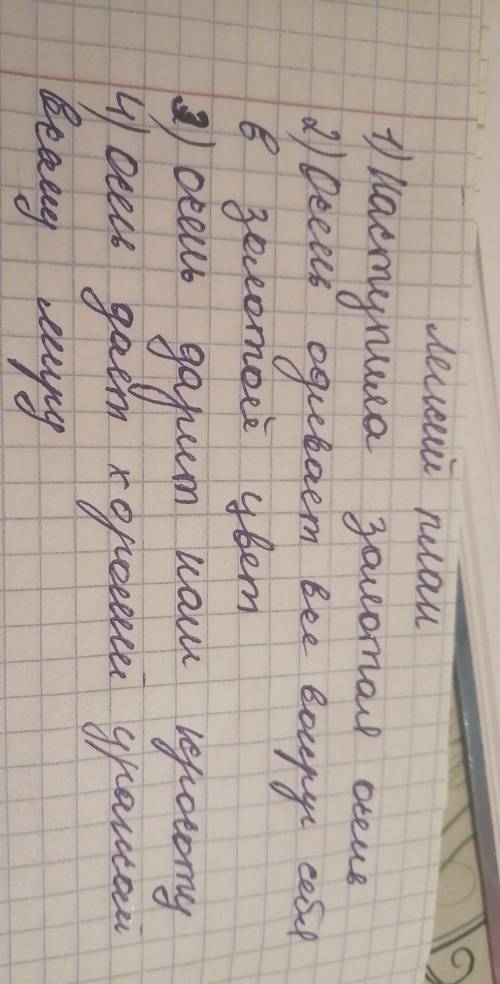 легкий план
1) Наступила золотая осень
2) Осень одевает все вокруг себя
в золотой цвет
3) осень дарит нам красоту
4) осень дает хороший урожай
всему миру